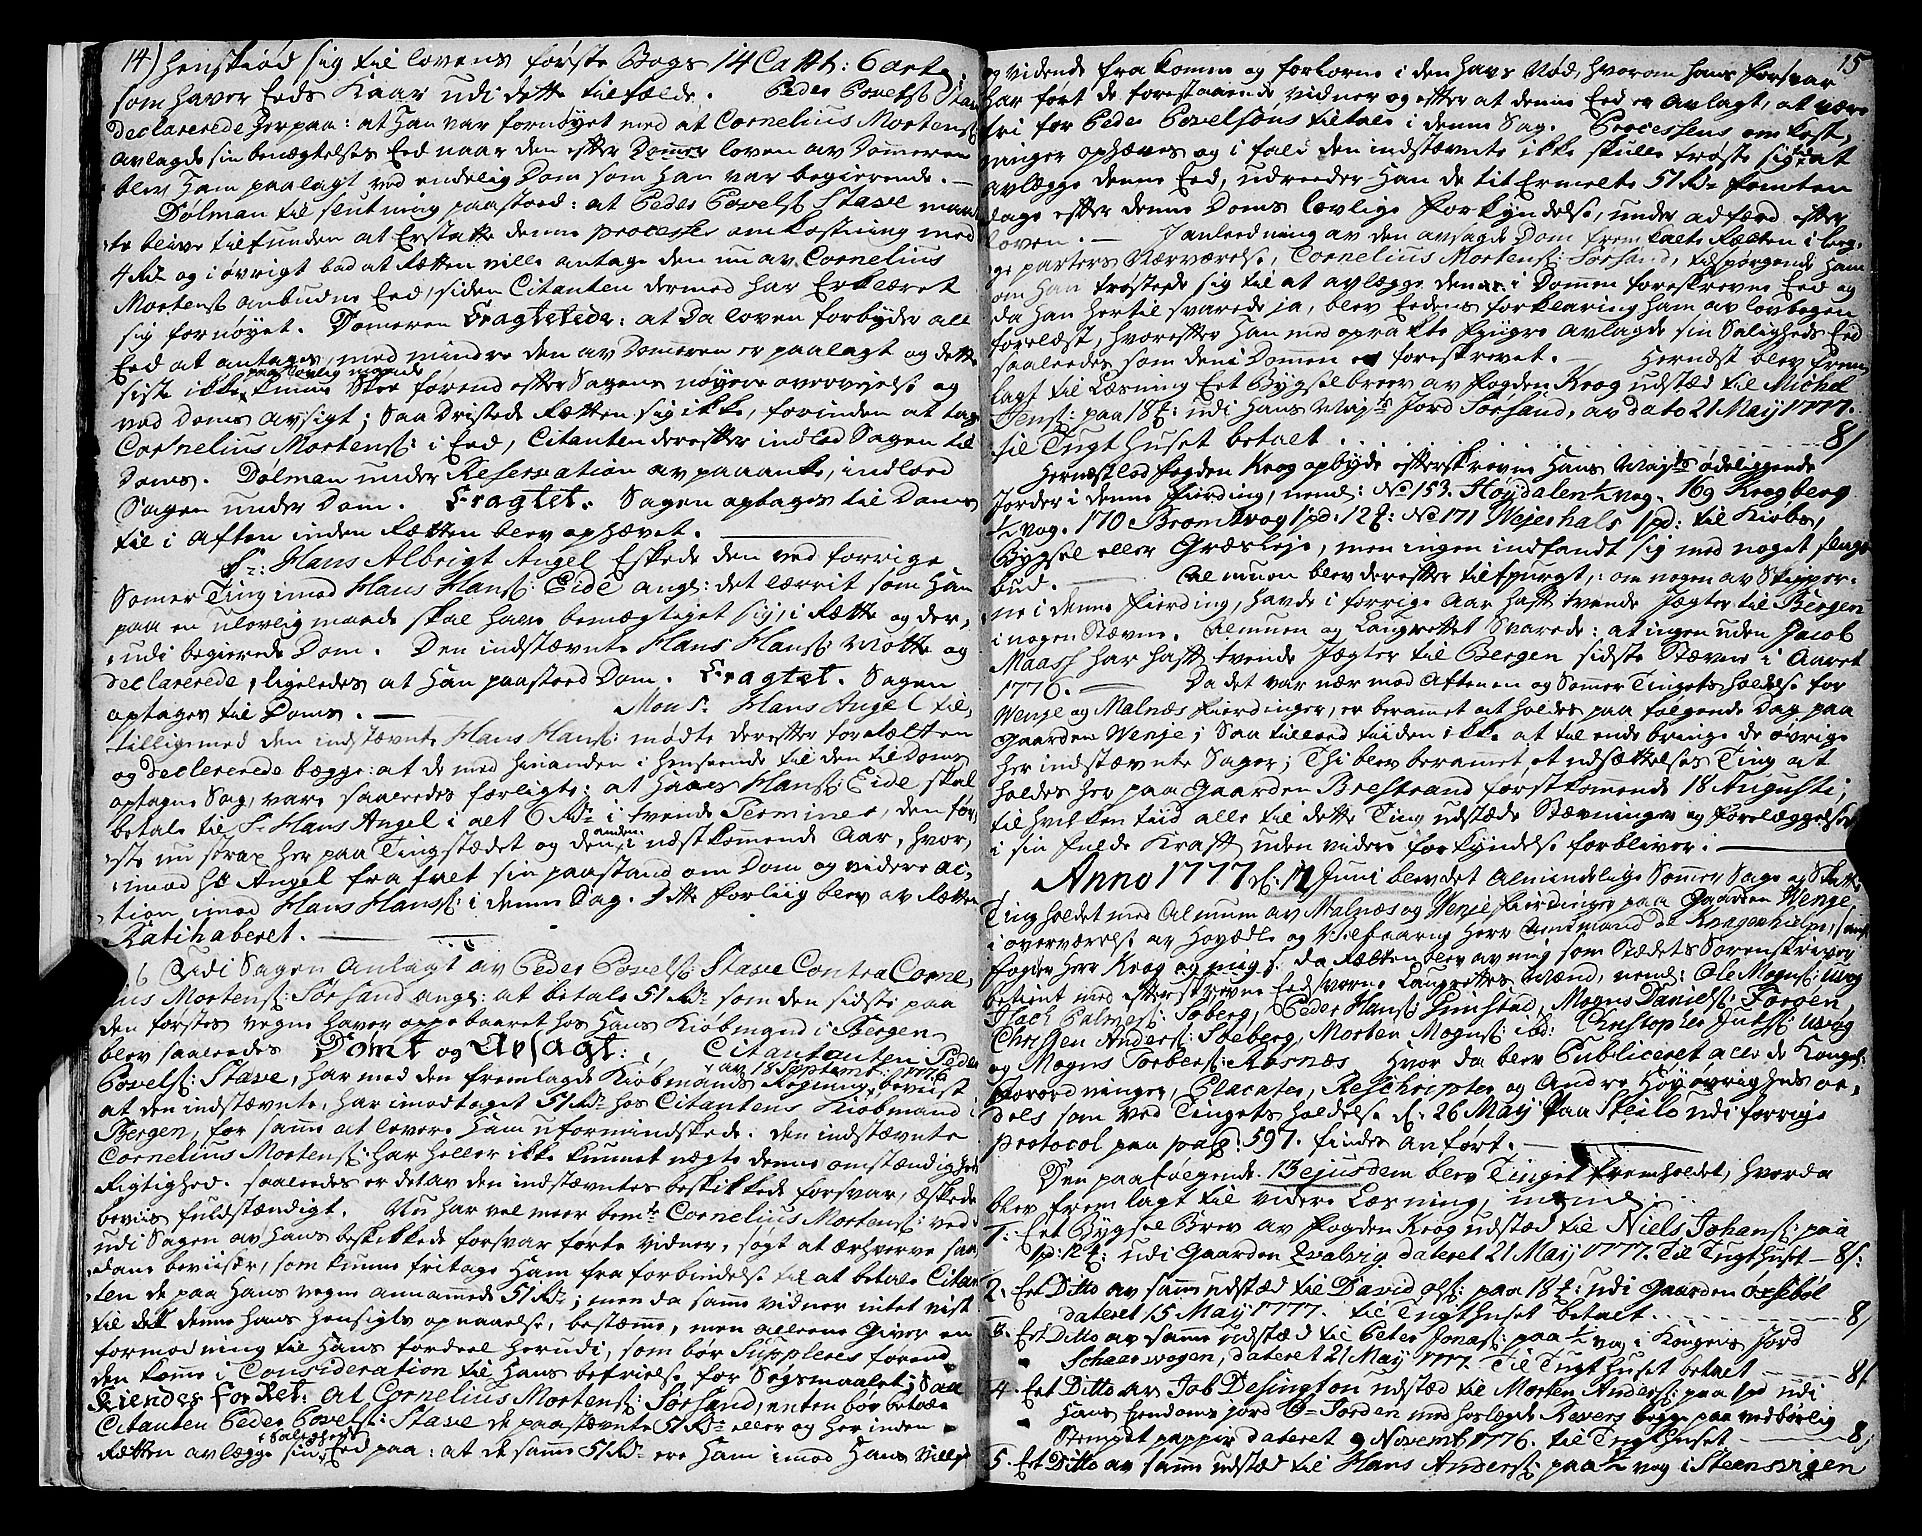 14) henskiød sig til lovens første Bogs 14 Capt: 6 art:
som haver Eeds Kaar udi dette tilfælde. Peder Povels: Stave
declarerede herpaa: at Han var fornøyet med at Cornelius Mortens:
avlagde sin benægtelses Eed naar den efter loven av Dommeren
blev Ham paalagt ved endelig Dom som Han var begierende. —
Dølman til slutning paastoed: at Peder Povels: Stave maa-
te blive tilfunden at Erstatte denne processes omkostning med
4 Rd og i øvrigt bad at Rætten ville antage den nu av Cornelius
Mortens: anbudne Eed, siden Citanten dermed har Erklæret
sig fornøyet. Domeren Eragtede: at Da loven forbyder all
Eed at antages, med mindre den av Domeren er paalagt og dette
siste ikke paa lovlig maade kunne Skee førend efter Sagens nøyere overvejelse og
ved Doms avsigt; Saa Dristede Rætten sig ikke, forinden at tage
Cornelius Mortens: i Eed, Citanten derefter indlod Sagen til
Doms. Dølman under Reservation av paaanke, indlod
Sagen under Dom. Eragtet. Sagen optages til Doms
til i Aften inden Rætten blev ophævet. —
Sr: Hans Albrigt Angel Eskede den ved forrige
Somer Ting imod Hans Hans: Eide angl: det lærrit som Han
paa en ulovlig maade skal have bemægtiget sig, i Rætte og der-
udi begierede Dom. Den indstævnte Hans Hans: Møtte og
declarerede, ligeledes at Han paastoed Dom. Eragtet. Sagen
optages til Doms. — Mons. Hans Angel til-
tillige med den indstævnte Hans Hans: mødte derefter for Rætten
og declarerede begge: at de med hinanden i henseende til den til Doms
optagne Sag, vare saaledes forligte: at Hans Hans: Eide skal
betale til Sr Hans Angel i alt 6 Rd i tvende Terminer, den før-
ste nu strax her paa Tingstædet og den anden i næstkomende Aar, hvor-
imod Hr Angel frafalt sin paastand om Dom og videre ac-
tion imod Hans Hans: i denne Sag. Dette Forliig blev av Rætten
Ratihaberet. —
6 Udi Sagen Anlagt av Peder Povels: Stave Contra Corne-
lius Mortens: Sørsand angl: at betale 51 Rd som den sidste paa
den førstes vegne haver oppebaaret hos Hans Kiøbmand i Bergen
blev saaledes Dømt og Avsagt: Citantanten Peder
Povels: Stave, har med den fremlagde Kiøbmands Regning av 18 Septembr: 1776 bevist
at den indstævnte, har imodtaget 51 Rd hos Citantens Kiøbmand i
Bergen, for samme at levere Ham uformindskede. Den indstævnte
Cornelius Mortens: har heller ikke kunnet nægte denne omstændigheds
Rigtighed. saaledes er det av den indstævntes beskikkede forsvar, æskede
beviis fuldstændigt. Nu har vel meer bemte Cornelius Mortens: ved
udi Sagen av Hans beskikkede forsvar førte vidner, søgt at ærhverve saa-
dane beviiser, som kunne fritage Ham fra forbindelse til at betale Citan-
ten de paa Hans vegne annammede 51 Rd; men da samme vidner intet vist
til denne Hans Hensigts opnaaelse, bestemme, men alleene Giver en
formodning til Hans fordeel herudi, som bør Suppleres førend
den komme i Consideration til Hans befrielse for Søgsmaalet; Saa
Kiendes for Ret: at Cornelius Mortens: Sørsand, enten bør betale
Citanten Peder Povels: Stave de paastævnte 51 Rd eller og her inden
Rætten avlægge sin Saligheds Eed paa: at de samme 51 Rd ere Ham imod Hans villje
15
og vidende frakomne og forlorne i den Havs Nød, hvorom Hans forsvar
har ført de forestaaende vidner og efter at denne Eed er avlagt, at være
fri for Peder Povelsøns tiltale i denne Sag. Processens omkost-
ninger ophæves og i fald den indstævnte ikke skulle trøste sig til at
avlægge denne Eed, udreeder Han de tit Ermelte 51 Rd femten
dage efter denne Doms lovlige forkyndelse, under adfærd efter
loven. — I anledning av den avsagde Dom fremkalte Rætten i beg-
ge parters Nærværelse, Cornelius Mortens: Sørsand, tilspørgende Ham
om Han trøstede sig til at avlægge den i Dommen foreskrevne Eed og
da Han hertil svarede ja, blev Eedens forklaring Ham av lovbogen
forelæst, hvorefter Han med oprakte fingre avlagde sin Saligheds Eed
saaledes som den i Domen er foreskrevet. — Hernæst blev frem-
lagt til Læsning Eet Bygselbrev av fogden Krog udstæd til Michel
Jens: paa 18 f: udi Hans Majts Jord Sørsand, av dato 21 May 1777.
til Tugthuset betalt . . . 8/
Hernæst lod fogden Krog opbyde efterskrevne Hans Majts ødeliggende
Jorder i denne fierding, neml: No 153. Høydalen ½ vog. 169 Krogberg
½ vog. 170 Bromvog 1 pd: 12 f: No 171 Wejershals 1 pd: til Kiøbs,
Bygsel eller Græsleje, men ingen indfandt sig med noget slags
bud. — Almuen blev derefter tilspurgt, om nogen av Skipper-
ne i denne fierding, havde i forrige Aar haft tvende Jægter til Bergen
i nogen Stævne. Almuen og Laugrettet Svarede: at ingen uden Jacob
Maash har haft tvende Jægter til Bergen sidste Stævne i Aaret
1776. — Da det var nær mod Aftenen og Somer Tingets holdelse for
Wenje og Malnæs fierdinger, er berammet at holdes paa følgende Dag paa
Gaarden Wenje; Saa tillod tiiden ikke at til ende bringe de øvrige
her indstævnte Sager; Thi blev beramet et udsættelses Ting at
holdes her paa Gaarden Brestrand førstkomende 18 Augusti,
til hvilken tiid alle til dette Ting udstæde Stævninger og Forelæggelser
i sin fulde Kraft uden videre forkyndelse forbliver. —
Anno 1777 d: 12 Juni blev det Almindelige Sommer Sage og Skatte
Ting holdet med Almuen av Malnæs og Wenje Fierdinger paa Gaarden Wenje
i overværelse av Høyædle og Velbaarne Herr Amtmand de Knagenhielm, samt
fogden Herr Krog og mig. da Rætten blev av mig som Stedets Sorenskriver
betient med efterskrevne Eedsvorne Laugrettes Mænd, neml: Ole Mogns: Uvog
Isach Palmes: Soberg, Peder Hans: Grimstad, Mogns Daniels: Forgen,
Christen Anders: Soeberg, Morten Mogns: ibd: Christopher Juls: Uvog
og Mogns Torbers: Rosnæs. Hvor da blev Publiceret alle de Kongel:
Forordninger, Placater, Rescripter og Andre Høyøvrigheds or-
dels som ved Tingets holdelse d: 26 May paa Steilo udi forrige
protocol paa pag: 597. findes anført. —
Den paafølgende 13 ejusdem blev Tinget fremholdet, hvorda
blev fremlagt til videre Læsning, neml.
1. Eet Bygsel Brev av fogden Krog udstæd til Niels Johans: paa
1 pd: 12 f: udi Gaarden Qvalvig dateret 21 May 1777. Til Tugthuset — 8/:
2. Eet Ditto av samme udstæd til David Ols: paa 18 f: udi Gaarden Oxebøl
dateret 15 May 1777. til Tugthuset betalt . . . 8/
3. Eet Ditto av samme udstæd til Peter Jonas: paa ½ vog i Kongens Jord
Schaarvogen, dateret 21 May 1777. Til Tugthuset betalt — 8/
4. Eet Ditto av Job Desington udstæd til Morten Anders: paa 1 pd udi
Hans Eiendoms jord Ø-Jorden med hoslagde Revers begge paa vedbørlig
Stemplet papper dateret 9 Novemb 1776. til Tugthuset — 8/
5. Eet Ditto av samme udstæd til Hans Anders: paa ½ vog i Steensvigen